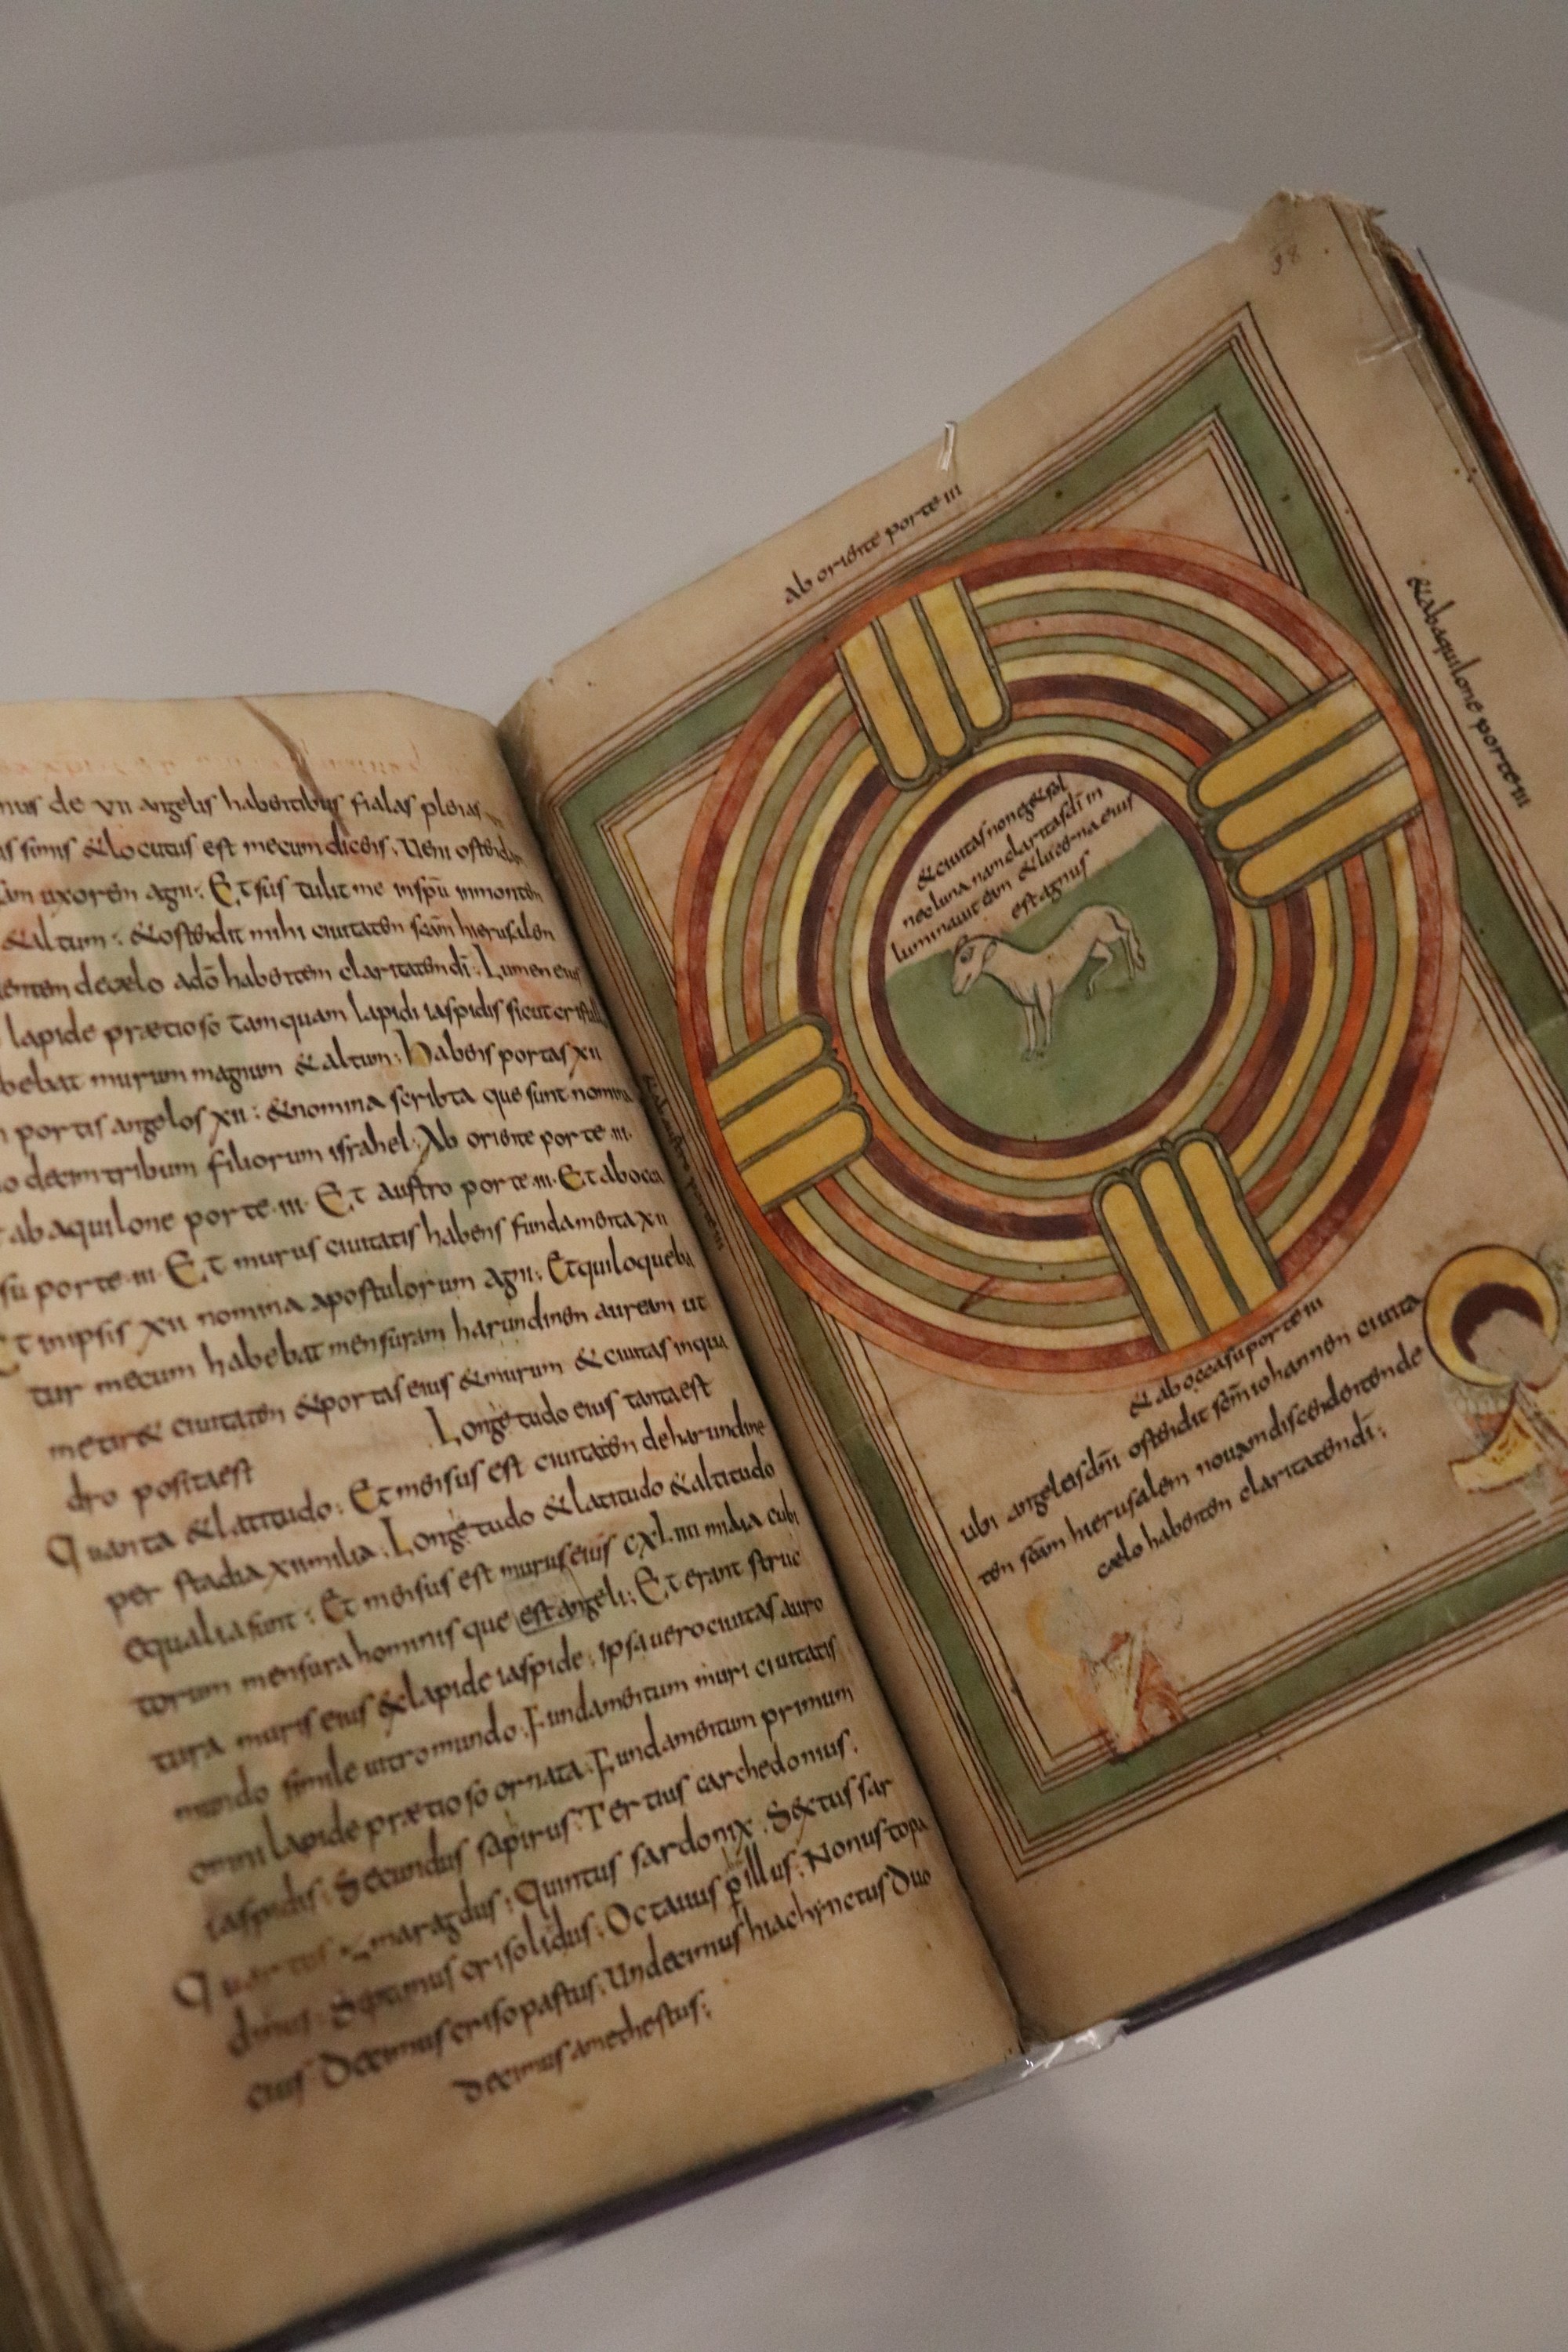 nus de vii angelis habentibus fialas plenas
is simis & locutus est mecum dicens. Ueni ostendam
uxorem agni: Et sus tulit me inspu inmontem
& altum: & ostendit mihi ciuitatem scam hierusalem
entem decelo ado habentem claritatem di: Lumen eius
lapide prætioso tamquam lapidi iaspidis sicut cristall
bebat murum magnum & altum: Habens portas xii
portis angelos xii: & nomina scribta que sunt nomina
o decim tribum filiorum israhel: Ab oriente porte .iii.
ab aquilone porte .iii. Et austro porte .iii. Et abocca
su porte .iii. Et murus ciuitatis habens fundamenta xii
Et inipsis xii nomina apostulorum agni: Et quiloqueba
tur mecum habebat mensuram harundinem auream ut
metir& ciuitatem & portas eius & murum & ciuitas inqua
dro posita est Longetudo eius tanta est
Quanta & latitudo: Et mensus est ciuitatem deharundine
per stadia xii milia: Longetudo & latitudo & altitudo
equalia sunt: Et mensus est murus eius cxl.iiii milia cubi
torum mensura hominis que est angeli: Et erant struc
tura muris eius & lapide iaspide: ipsa uero ciuitas auro
mundo simile uitro mundo: Fundamentum muri ciuitatis
omni lapide prætioso ornata: Fundamentum primum
iaspidis: Secundus sapirus: Tertius carchedonius.
Quartus zmaragdus: Quintus sardonix. Sextus sar
dinus: Septimus crisolidus: Octauus pillus: Nonus topa
cius Decimus crisopastus: Undecimus hiachynctus Duo
decimus amethestus:
38.
ab oriente porte iii
& abaquilone porte iii
& ciuitas non eg& sol
nec luna nam claritas di in
luminauit eam & lucerna eius
est agnus
& ab austro porte iii
& ab occasu porte iii
ubi angeleis dni ostendit scm iohannen ciuita
ten scam hierusalem nouam discendentem de
cælo habenten claritatem di: